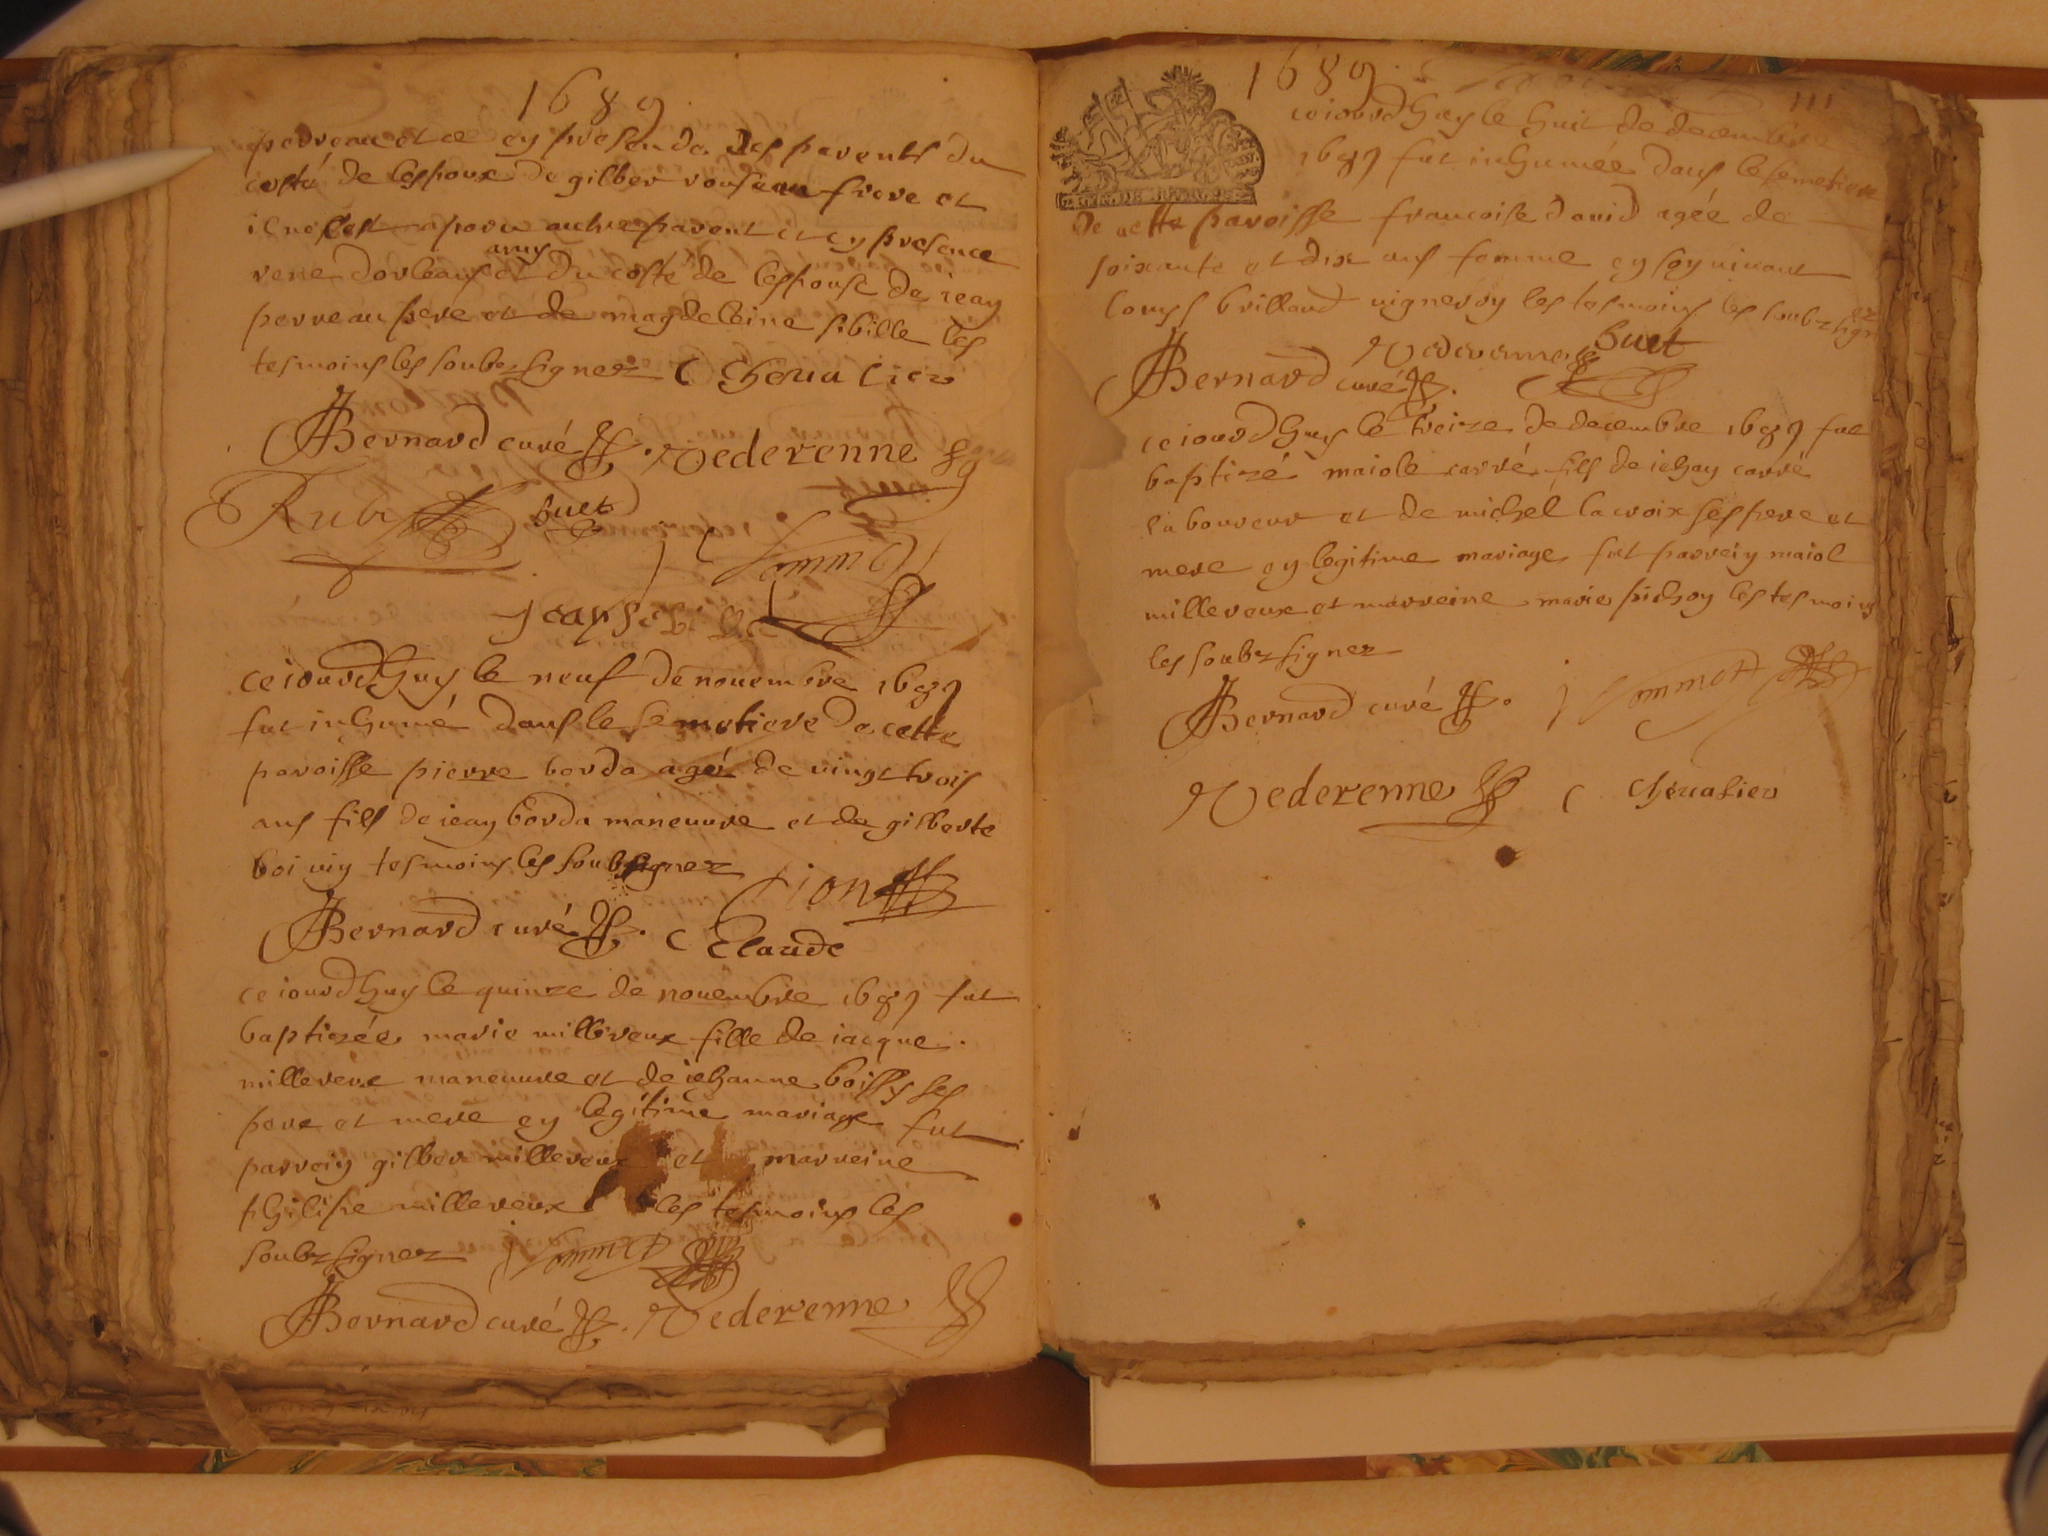 1689
perreau et ce en presence des parents du
costé de lespoux de gilber rouseau frere et
il nest aparu autre parent et en presence
rene dorleans amys et du costé de lespouse de jean
perreau pere et de magdeleine sibille les
tesmoins les soubz signez C Chevalier
Bernard curé Vederenne
Rub huet
Jommet
jean
ce iourdhuy le neuf de novembre 1689
fut inhumé dans le semetiere de cette
paroisse pierre borda agé de vingt trois
ans fils de jean borda maneuvre et de gilberte
boivin tesmoins les soubsignez
Bernard curé C Claude
ce iourdhuy le quinze de novembre 1689 fut
baptizée marie millereux fille de jacque
millereux maneuvre et de jehanne boissy ses
pere et mere en legitime mariage fut
parrein gilber millereux et marreine
philipe millereux les tesmoins les
soubz signez Jommet
Bernard curé Vederenne
1689
111
ce iourdhuy le huit de decembre
1689 fut inhumée dans le semetiere
de cette paroisse francoise david agée de
soixante et dix ans femme en son vivant
louys brilland vigneron les tesmoins les soubz signez
Bernard curé Vederenne huet
ce iourdhuy le treize de decembre 1689 fut
baptizé maiole carré fils de jehan carré
laboureur et de michel lacroix ses pere et
mere en legitime mariage fut parrein maiol
millereux et marreine marie pichon les tesmoins
les soubz signez
Bernard curé Jommet
Vederenne C Chevalier